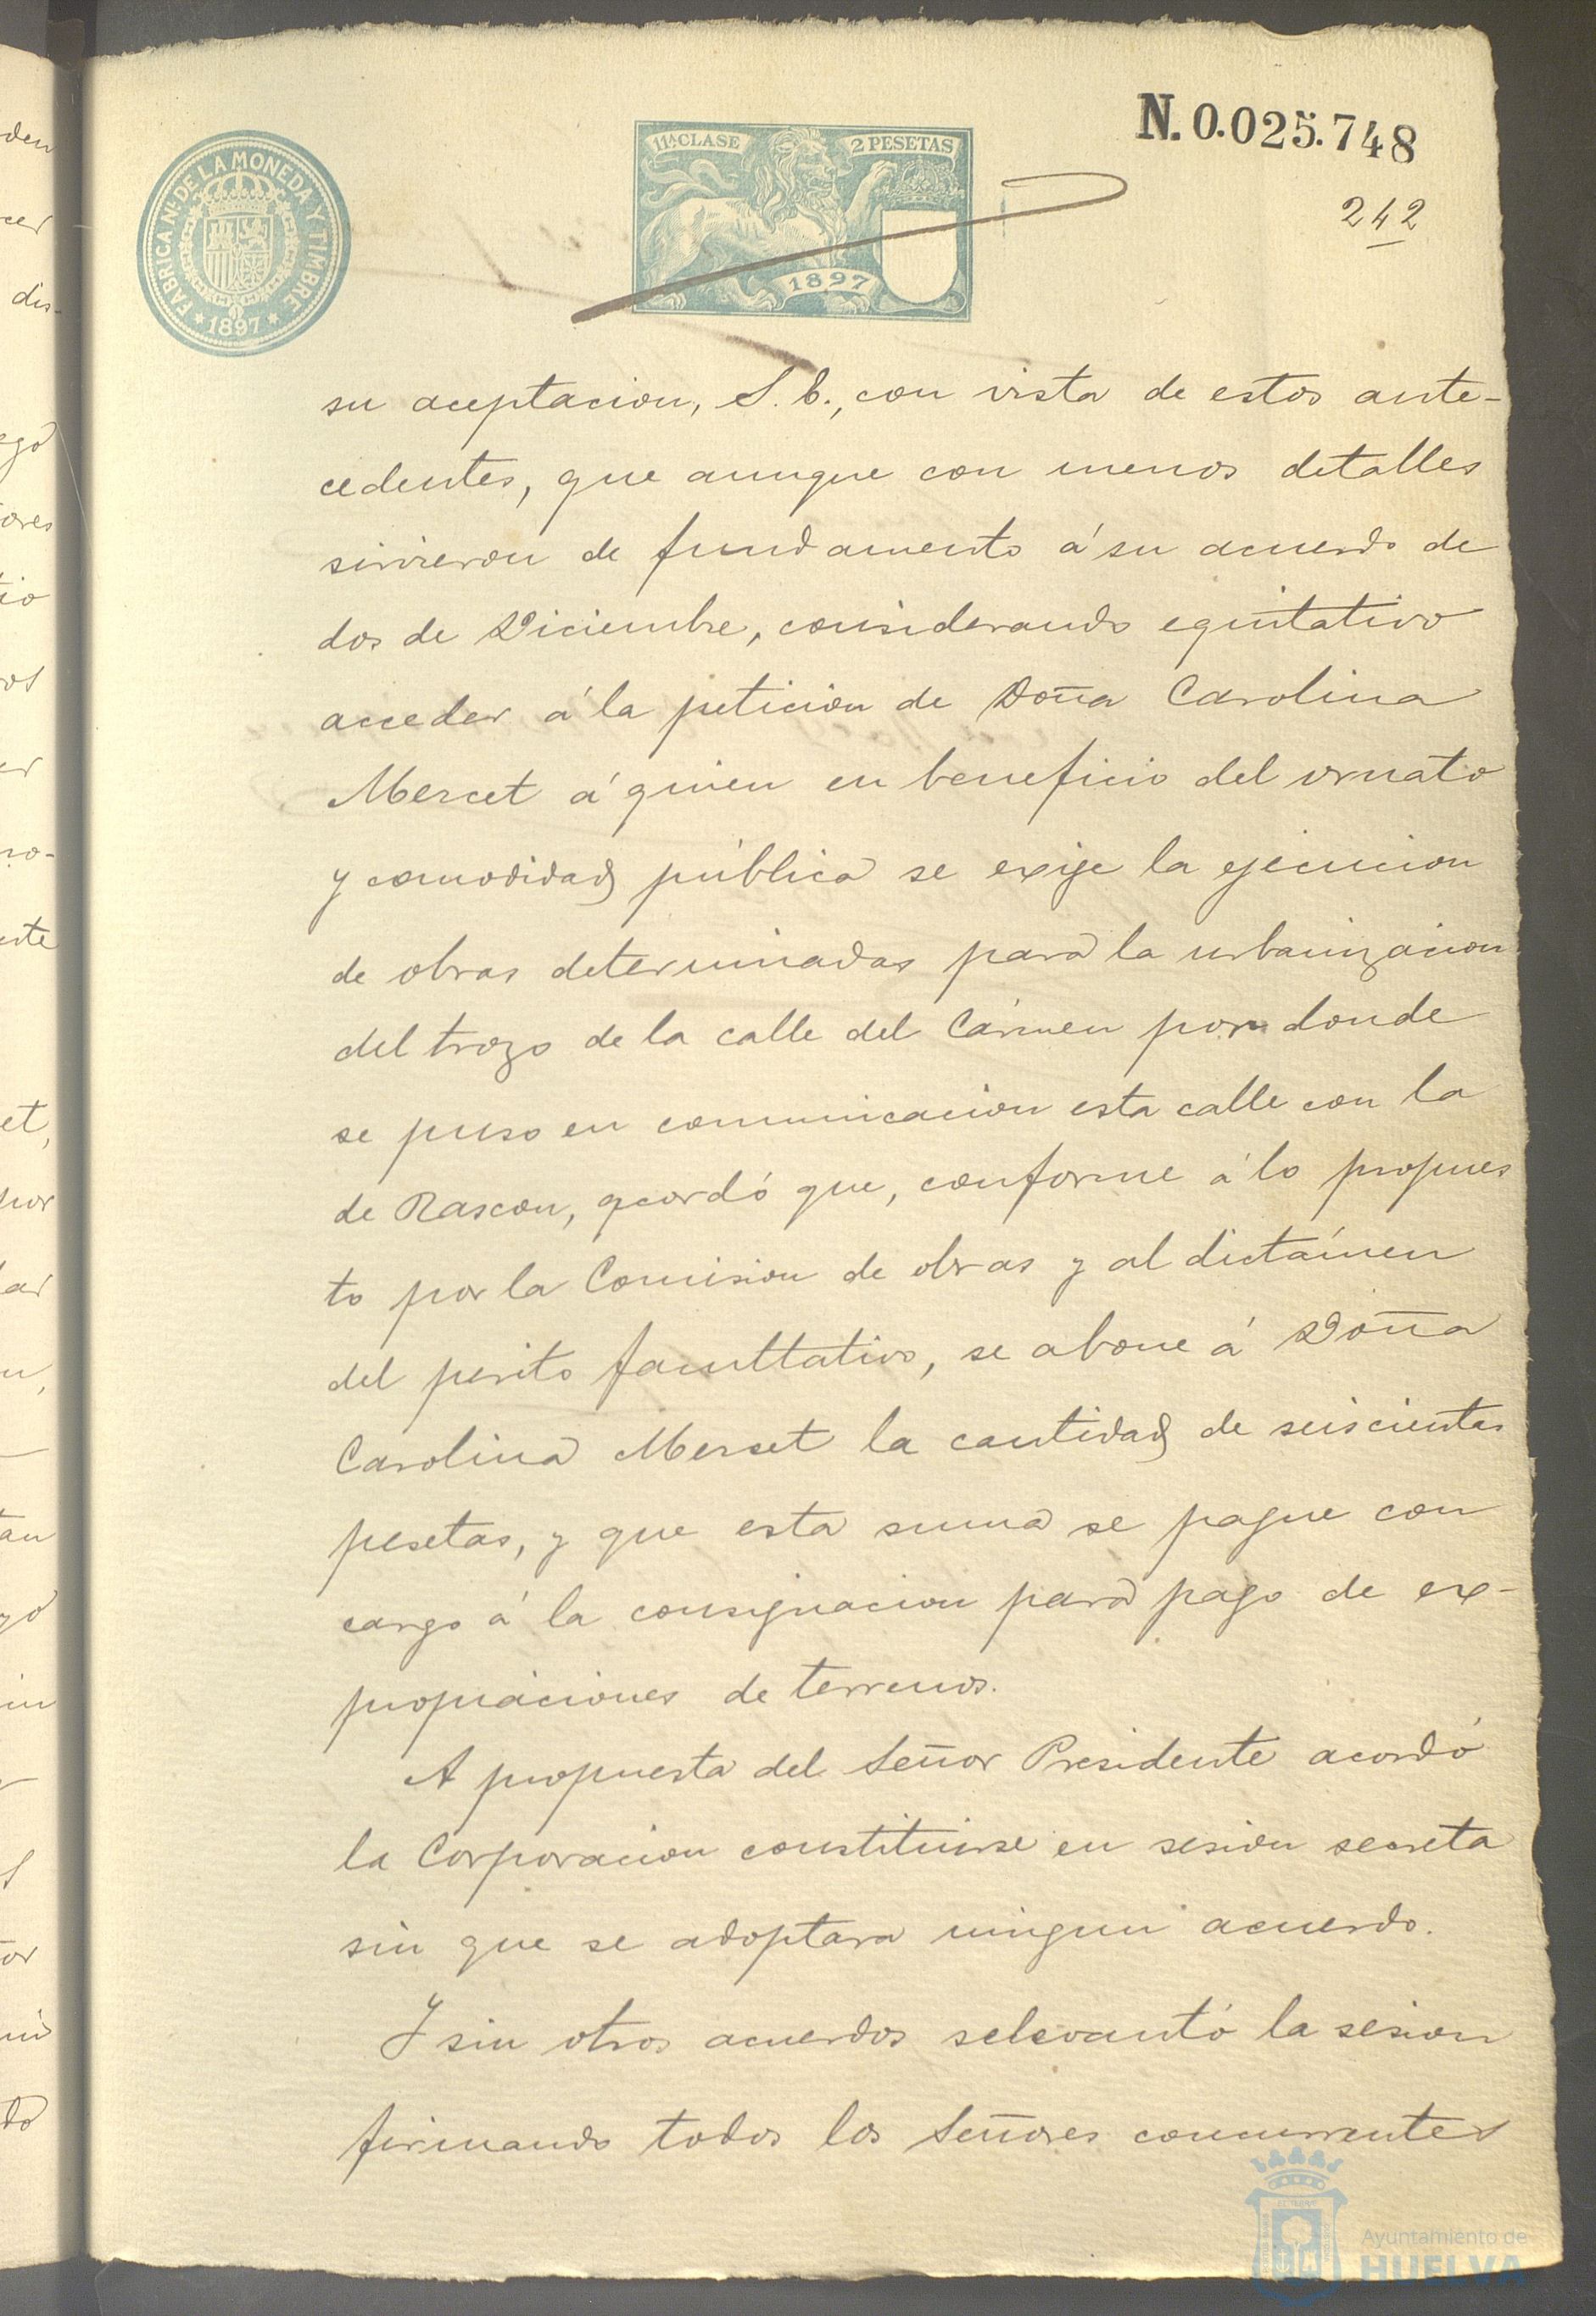 N. 0.025.748
11ª CLASE 2 PESETAS
FABRICA Nᴸ DE LA MONEDA Y TIMBRE
* 1897 *
1897
242
su aceptacion, S. E., con vista de estos ante-
cedentes, que aunque con menos detalles
sirvieron de fundamento á su acuerdo de
dos de Diciembre, considerando equitativo
acceder á la peticion de Doña Carolina
Mercet á quien en beneficio del ornato
y comodidad pública se exije la ejecucion
de obras determinadas para la urbanizacion
del trozo de la calle del Cármen por donde
se puso en comunicacion esta calle con la
de Rascon, acordó que, conforme á lo propues
to por la Comision de obras y al dictámen
del perito facultativo, se abone á Doña
Carolina Merset la cantidad de seiscientas
pesetas, y que esta suma se pague con
cargo á la consignacion para pago de ex-
propiaciones de terrenos.
A propuesta del Señor Presidente acordó
la Corporacion constituirse en sesion secreta
sin que se adoptara ningun acuerdo.
Y sin otros acuerdos se levantó la sesion
firmando todos los Señores concurrentes
Ayuntamiento de
HUELVA